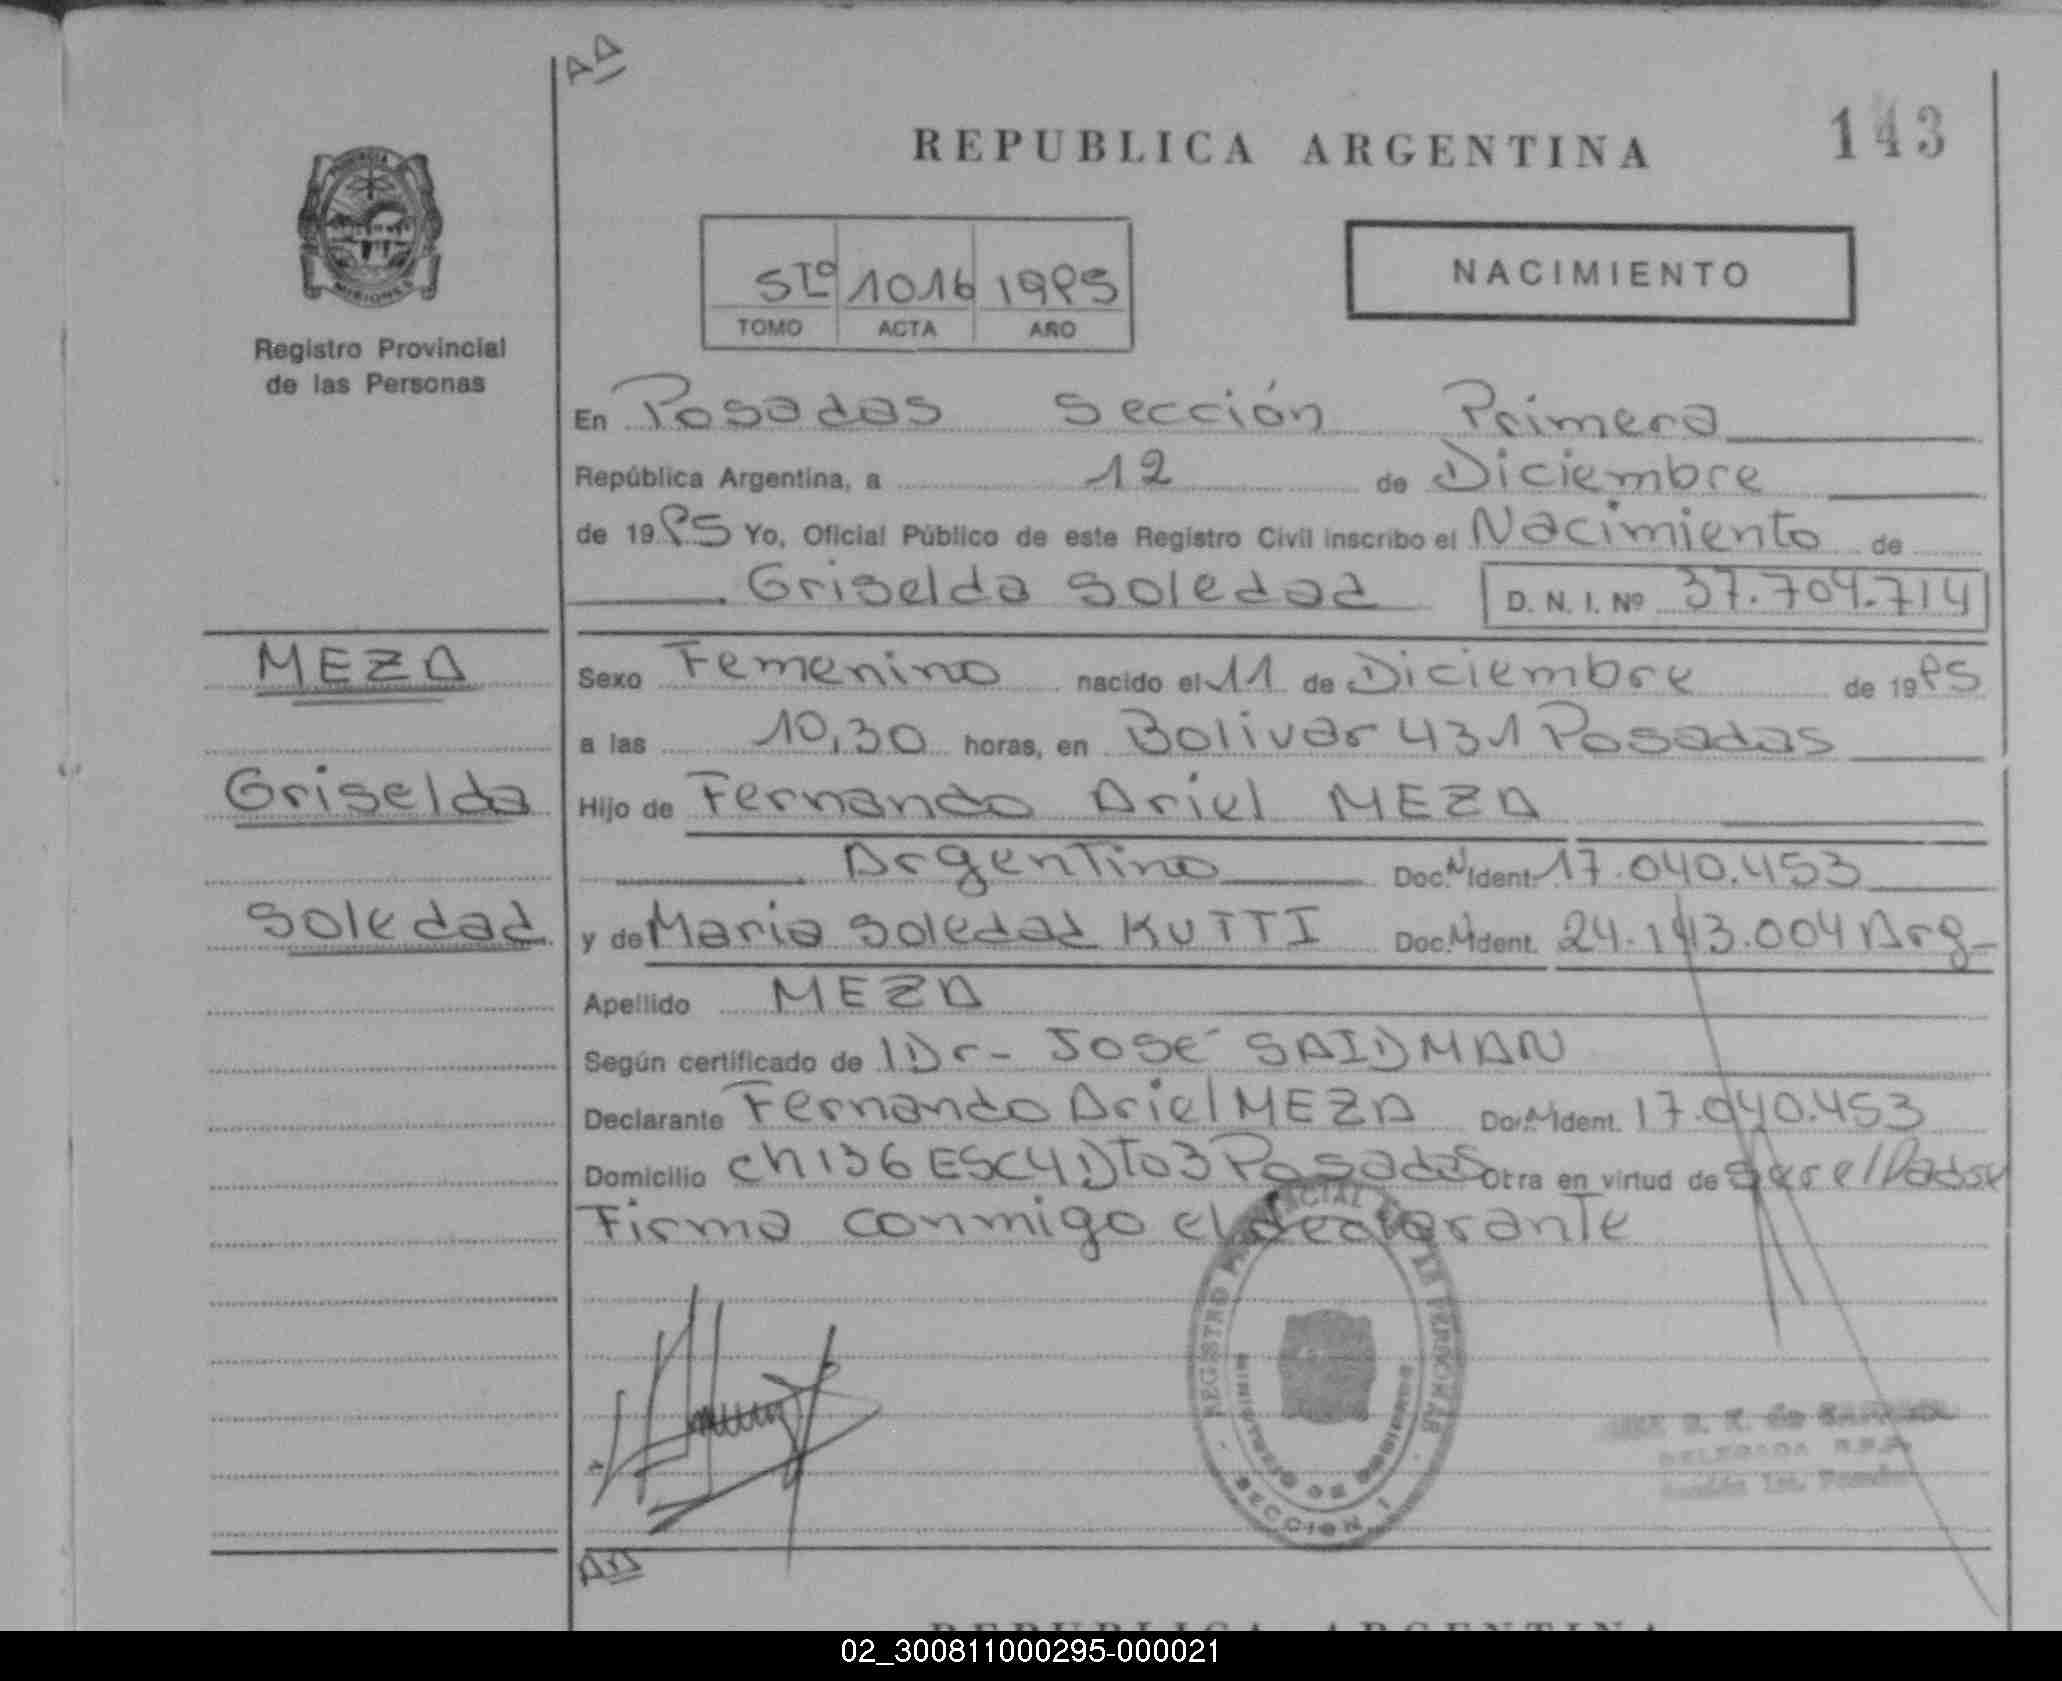 AA
REPUBLICA ARGENTINA
143
PROVINCIA
MISIONES
Registro Provincial
de las Personas
5to 1016 1995
TOMO ACTA AÑO
NACIMIENTO
En Posadas Sección Primera
República Argentina, a 12 de Diciembre
de 1995 Yo, Oficial Público de este Registro Civil inscribo el Nacimiento de
Griselda Soledad D. N. I. Nº 37.704.714
MEZA
Sexo Femenino nacido el 11 de Diciembre de 1995
a las 10,30 horas, en Bolivar 431 Posadas
Griselda
Hijo de Fernando Ariel MEZA
Argentino Doc. N Ident. 17.040.453
Soledad
y de Maria Soledad KUTTI Doc. N Ident. 24.143.004 Arg-
Apellido MEZA
Según certificado de Dr- José SAIDMAN
Declarante Fernando Ariel MEZA Doc. N Ident. 17.040.453
Domicilio ch 136 ESC 4 Dto 3 Posadas Otra en virtud de ser el Padre
Firma conmigo el declarante
REGISTRO PROVINCIAL DE LAS PERSONAS
MINISTERIO DE GOBIERNO
SECCION 1
DELEGADA R.P.P.
Sección 1ra. Posadas
AA
REPUBLICA ARGENTINA
02_300811000295-000021